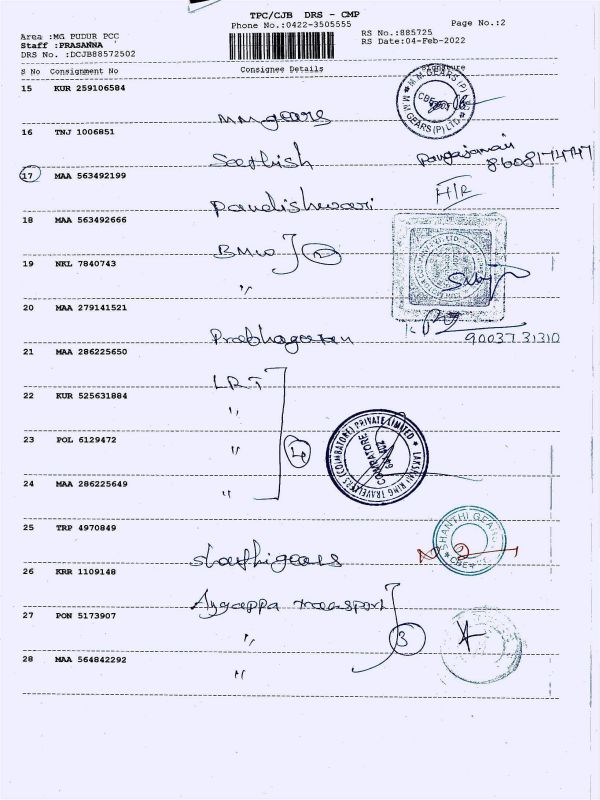 TPC/CJB DRS - CMP
Phone No.:0422-3505555
Page No.:2
Area :MG PUDUR PCC
Staff :PRASANNA
DRS No. :DCJB88572502
RS No.:885725
RS Date:04-Feb-2022
S No Consignment No Consignee Details Signature
15 KUR 259106584
M M gears
M.M.GEARS (P) LTD
CBE
16 TNJ 1006851
Sathish
8608174747
17 MAA 563492199
Pandishwari
H/R
18 MAA 563492666
BMW 2
19 NKL 7840743
"
20 MAA 279141521
Prabhagaran
9003731310
21 MAA 286225650
LRT
22 KUR 525631884
"
23 POL 6129472
"
4
LAKSHMI RING TRAVELLERS (COIMBATORE) PRIVATE LIMITED
COIMBATORE
24 MAA 286225649
"
25 TRP 4970849
shanthi gears
SHANTHI GEARS
CBE
26 KRR 1109148
Ayyappa transport
27 PON 5173907
"
3
28 MAA 564842292
"